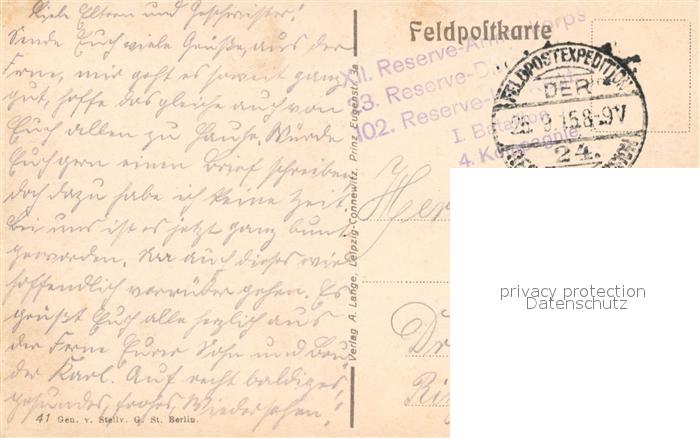 Viele Eltern und Geschwister!
Sende Euch viele Grüße, aus der
Ferne, mir geht es soweit ganz
gut, hoffe das gleiche auch von
Euch allen zu Hause. Würde
Euch gern einen Brief schreiben
doch dazu habe ich keine Zeit.
Bei uns ist es jetzt ganz bunt
geworden. auch dieses wird
hoffendlich vorrüber gehen. Es
grüßt Euch alle herzlich aus
der Ferne Eurer Sohn und Bru-
der Karl. Auf recht baldiges,
gesundes, frohes, Wiedersehen!
41 Gen. v. Stellv. G. St. Berlin.
Verlag A. Lange, Leipzig-Connewitz, Prinz Eugenstr. 3a
Feldpostkarte
XII. Reserve-Armeekorps
23. Reserve-Di
102. Reserve-
I. Bataillon
4. Kompagnie
FELDPOSTEXPEDITION
DER
15.8-9V
24.
Her
privacy protection
Datenschutz